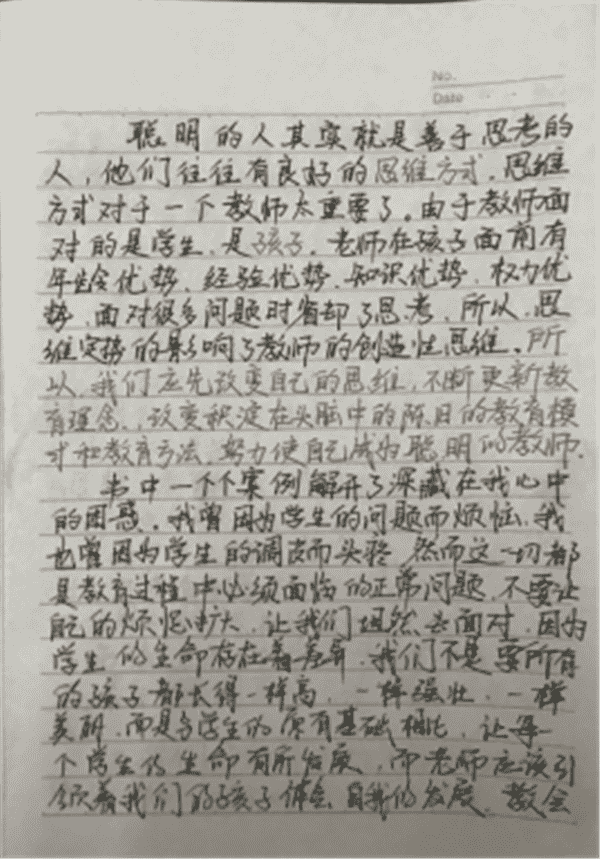 No.
Date
聪明的人其实就是善于思考的
人，他们往往有良好的思维方式。思维
方式对于一个教师太重要了。由于教师面
对的是学生、是孩子，老师在孩子面前有
年龄优势、经验优势、知识优势、权力优
势，面对很多问题时省却了思考，所以，思
维定势的影响了教师的创造性思维。所
以，我们应先改变自己的思维，不断更新教
育理念，改变积淀在头脑中的陈旧的教育模
式和教育方法，努力使自己成为聪明的教师。
书中一个个案例解开了深藏在我心中
的困惑。我曾因为学生的问题而烦恼，我
也曾因为学生的调皮而头疼，然而这一切都
是教育过程中必须面临的正常问题，不要让
自己的烦恼扩大，让我们坦然去面对，因为
学生的生命存在着差异，我们不是要所有
的孩子都长得一样高，一样强壮，一样
美丽，而是与学生的原有基础相比，让每一
个学生的生命有所发展，而老师应该引
领着我们的孩子体会自我的发展，教会